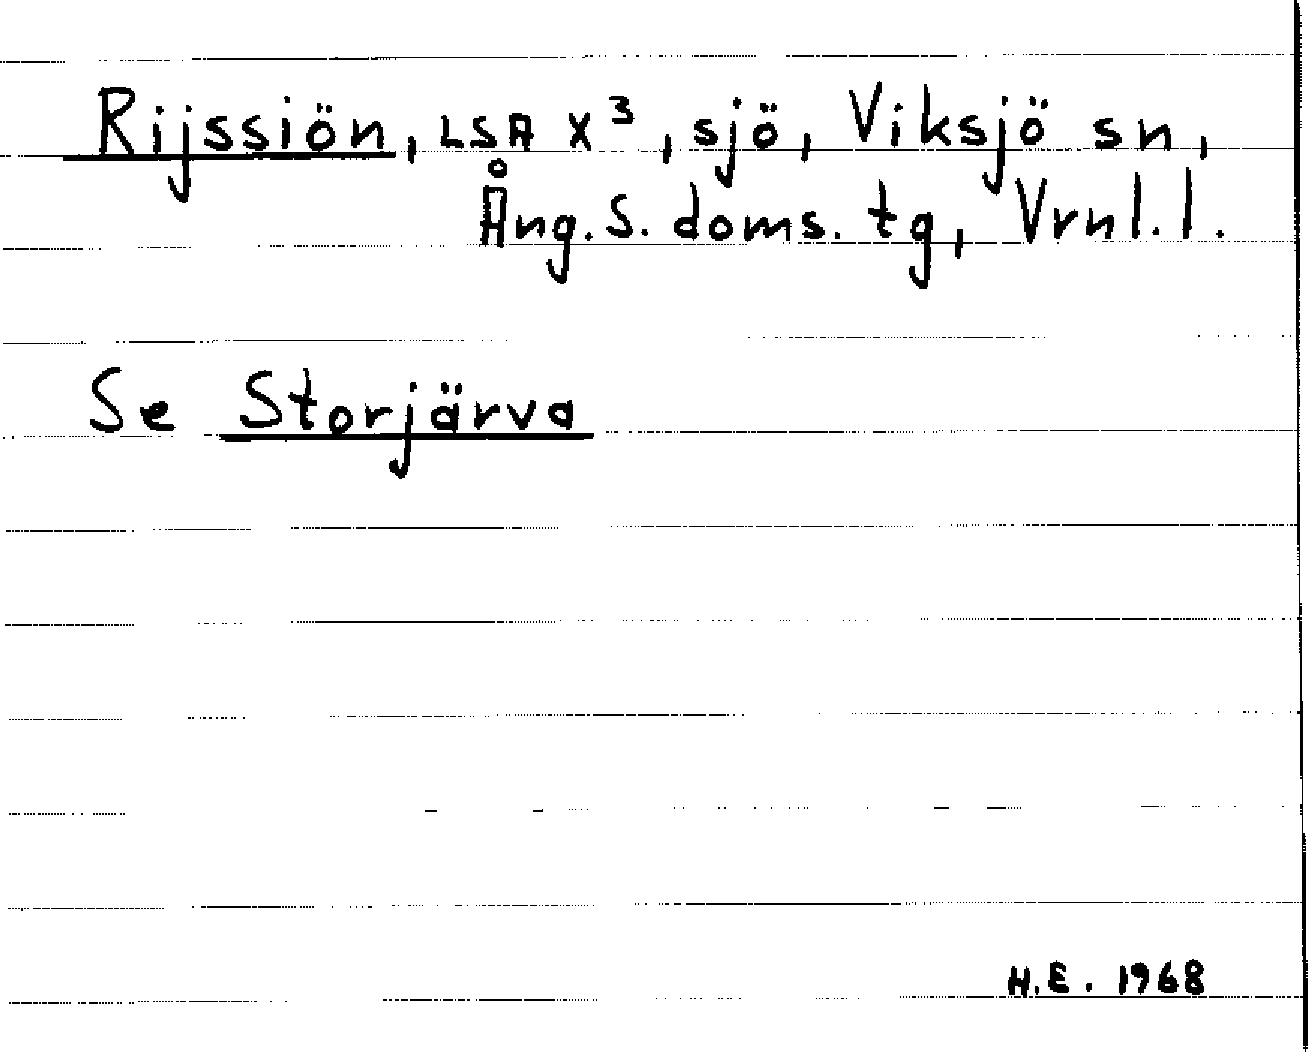 Rijssiön, LSA X³, sjö, Viksjö sn,
Ång. S. doms. tg, Vrnl. l.
Se Storjärva
H.E. 1968